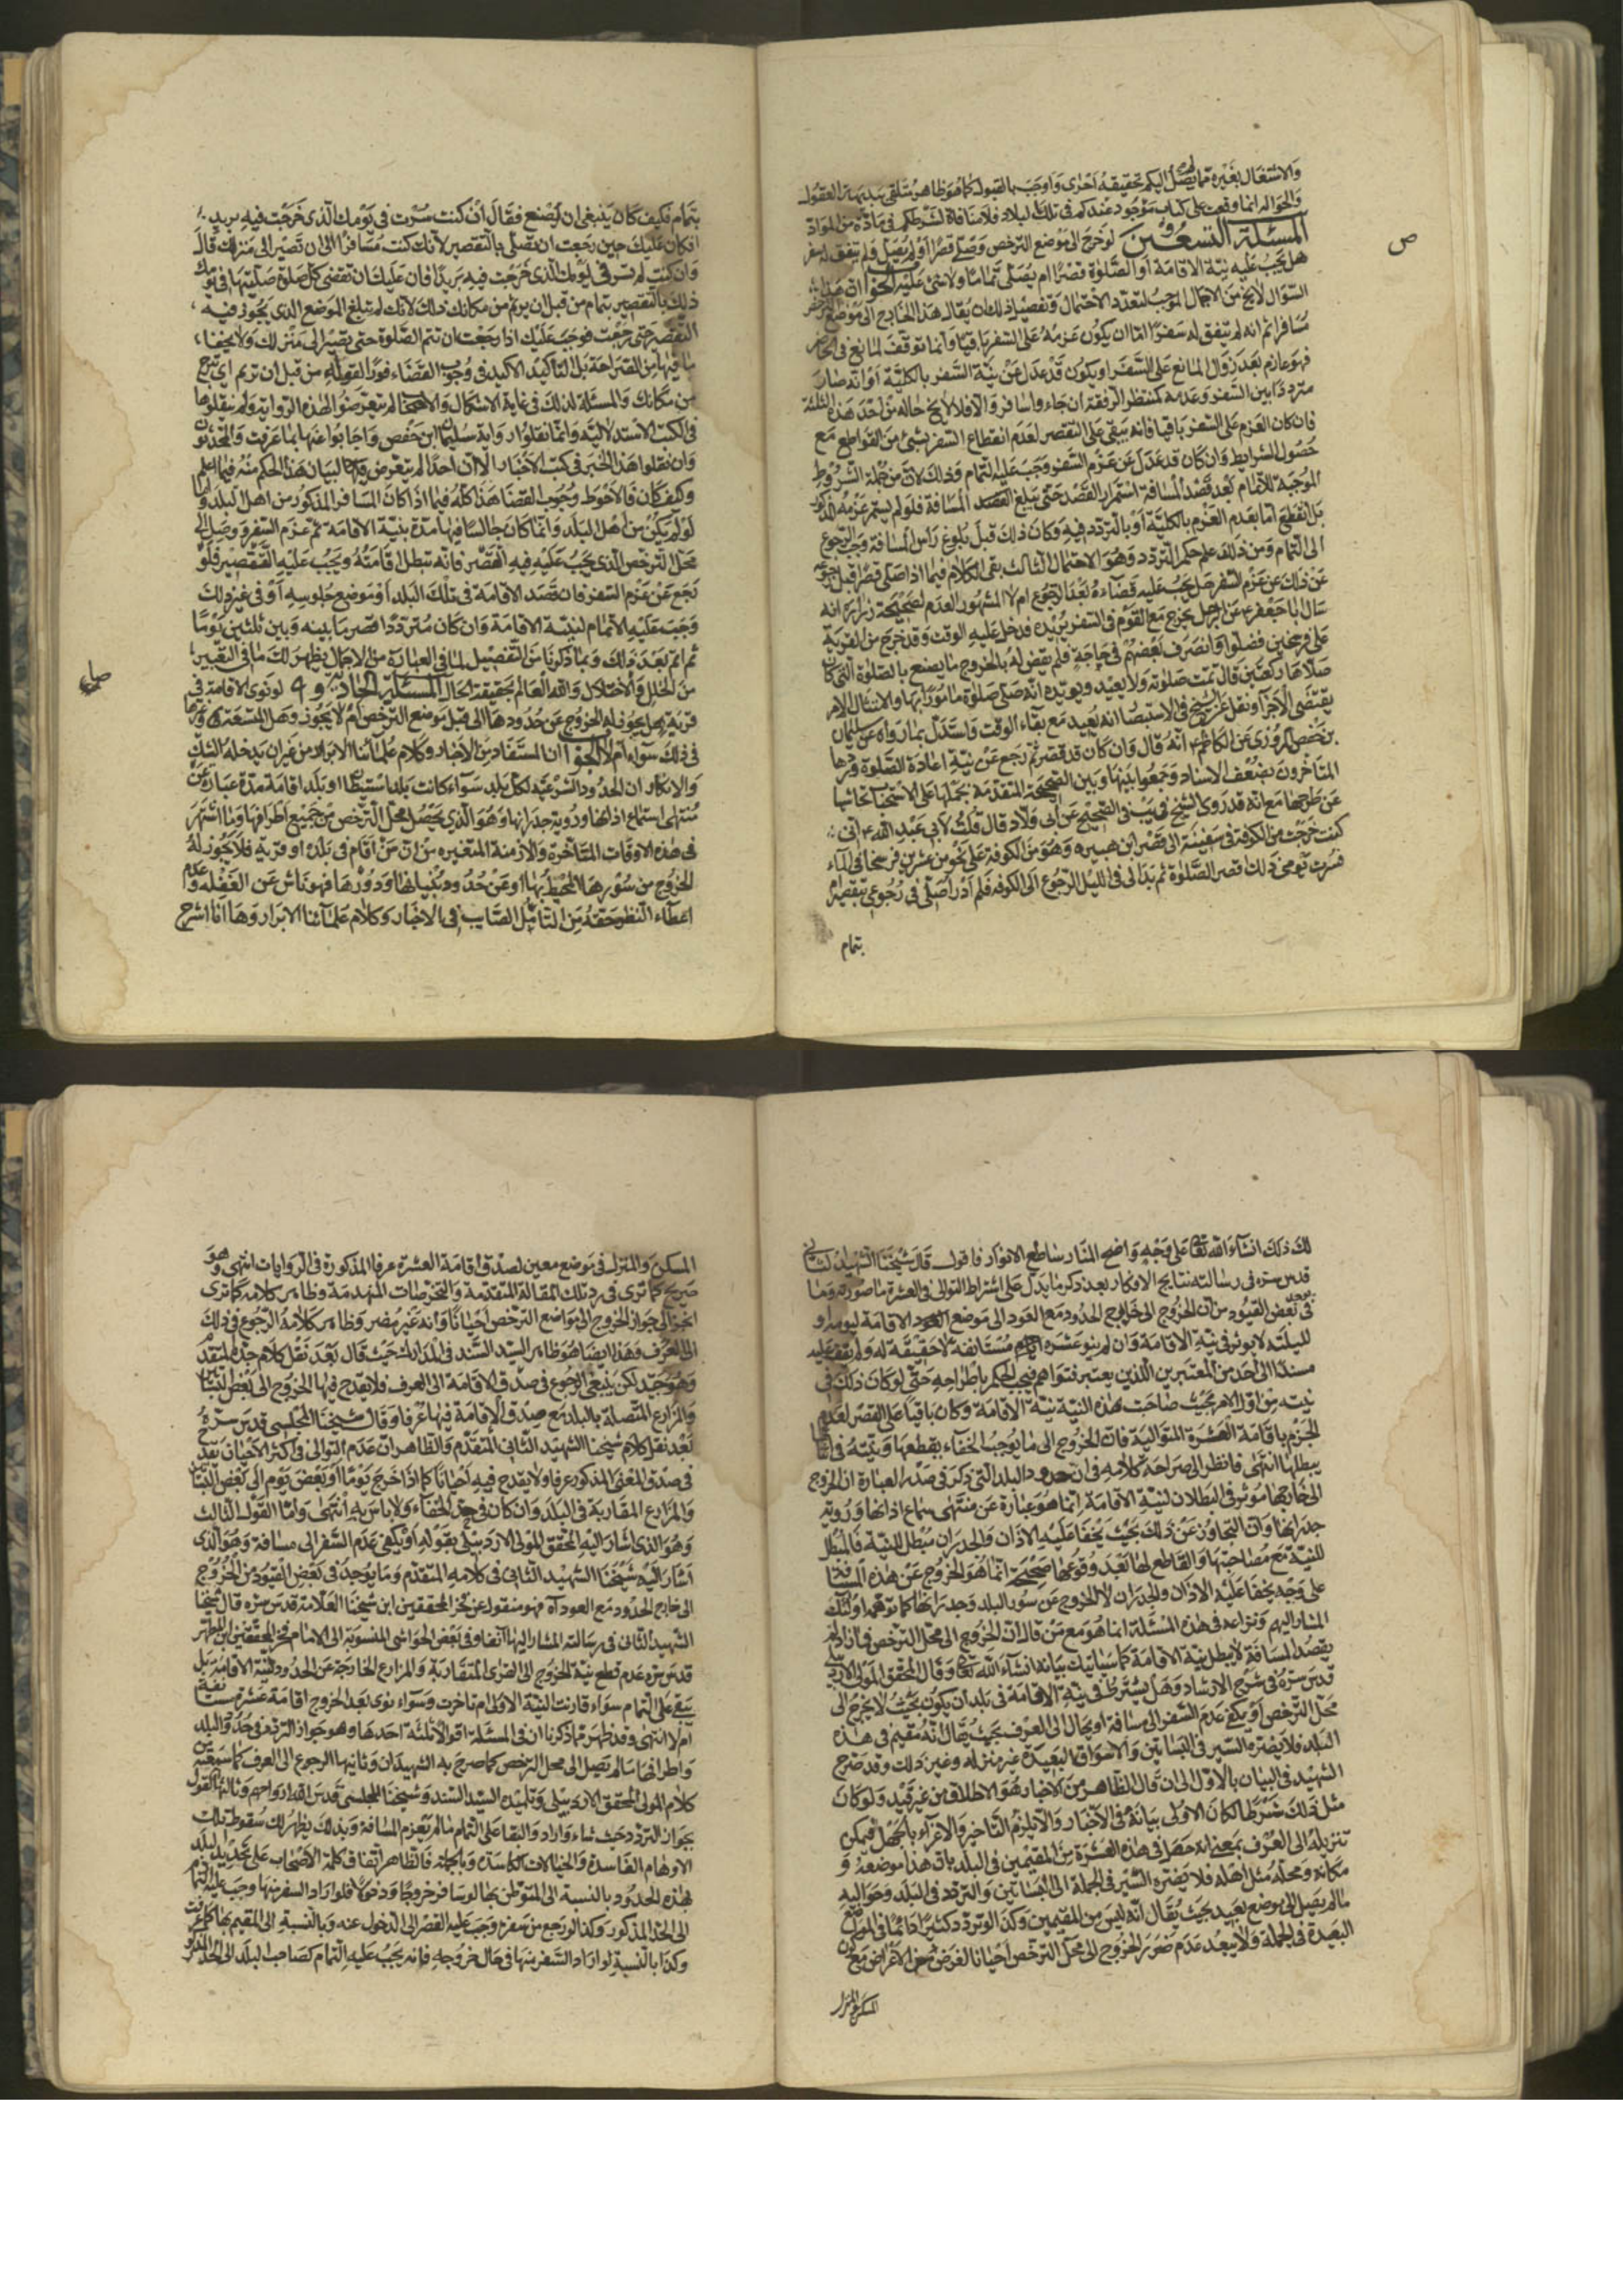 والاشتغال بغيره مما يصل اليكم تحقيقه احرى واوجب بالقبول كما هو ظاهر ستلقى ببديهة العقول
والحواله انما وقعت على كتاب موجود عندكم في تلك البلاد فلا منافاة لشرطكم في مادة من المواد
المسئلة التسعون لو خرج الى موضع الترخص وصلى قصرا او لم يصل فلم يتفق له سفر
هل يجب عليه نية الاقامة او الصلوة قصرا ام يصلى تماما ولا شئ عليه الجواب ان هذا
السؤال لا يخ من الاجمال الموجب لتعدد الاحتمال وتفصيل ذلك ان يقال هذا الخارج الى موضع الترخص
مسافرا ثم انه لم يتفق له سفر اما ان يكون عزمه على السفر باقيا وانما توقف لمانع في الحاضر
فهو عازم بعد زوال المانع على السفر او يكون قد عدل عن نية السفر بالكلية او انه صار
مترددا بين السفر وعدمه كمنتظر الرفقة ان جاء وا سافر والا فلا لا يخ حاله من احد هذه الثلثة
فان كان العزم على السفر باقيا فانه يبقى على التقصير لعدم انقطاع السفر بشئ من القواطع مع
حصول الشرايط وان كان قد عدل عن عزم السفر وجب عليه التمام وذلك لان من جملة الشروط
الموجبة للاتمام بعد قصد المسافة استمرار القصد حتى يبلغ المسافة فلو لم يستمر عزمه المذكور
بل انقطع اما بعدم العزم بالكلية او بالتردد فيه وكان ذلك قبل بلوغ راس المسافة وجب الرجوع
الى التمام ومن ذلك علم حكم التردد وهو الاحتمال الثالث بقى الكلام فيما اذا صلى قصرا قبل رجوعه
عن ذلك عن عزم السفر هل يجب عليه قضاءه بعد الرجوع ام لا المشهور العدم لصحيحة زرارة انه
سال ابا جعفر ع عن الرجل يخرج مع القوم في السفر يريده فدخل عليه الوقت وقد خرج من القرية
على فرسخين فصلوا وانصرف بعضهم في حاجة فلم يقض له بالخروج ما يصنع بالصلوة التي كان
صلاها ركعتين قال تمت صلوته ولا يعيد ويؤيده انه صلى صلوة مامورا بها والامتثال الامر
يقتضى الاجزاء ونقل عن الشيخ في الاستبصار انه يعيد مع بقاء الوقت واستدل بما رواه عن سليمان
بن حفص المروزي عن الكاظم ع انه قال وان كان قد قصر ثم رجع عن نية اعادة الصلوة وردها
المتاخرون بضعف الاسناد وجمعوا بينها وبين الصحيحة المتقدمة بحملها على الاستحباب تحاشيا
عن طرحها مع انه قد روى الشيخ في يب في الصحيح عن ابى ولاد قال قلت لابى عبد الله ع انى
كنت خرجت من الكوفة في سفينة الى قصر ابن هبيرة وهو من الكوفة على نحو من عشرين فرسخا في الماء
فسرت يومى ذلك اقصر الصلوة ثم بدا لى في الليل الرجوع الى الكوفه فلم ادر اصلى في رجوعى بتقصير ام
بتمام
ص
بتمام فكيف كان ينبغى ان يصنع فقال ان كنت سرت في يومك الذى خرجت فيه بريدا
فكان عليك حين رجعت ان تصلى بالتقصير لانك كنت مسافرا الى ان تصير الى منزلك قال
وان كنت لم تسر في يومك الذى خرجت فيه بريدا فان عليك ان تقضى كل صلوة صليتها في يومك
ذلك بالتقصير بتمام من قبل ان تريم من مكانك ذلك لانك لم تبلغ الموضع الذى يجوز فيه
التقصير حتى رجعت فوجب عليك اذا رجعت ان تتم الصلوة حتى تصير الى منزلك ولا يخفى
ما فيها من الصراحة بل التاكيد الاكيد في وجوب القضاء فورا لقوله من قبل ان تريم اى تبرح
من مكانك والمسئلة لذلك في غاية الاشكال والاصحاب لم يتعرضوا لهذه الرواية ولم ينقلوها
في الكتب الاستدلالية وانما نقلوا رواية سليمان ابن حفص واجابوا عنها بما عرفت والمحدثون
وان نقلوا هذا الخبر في كتب الاخبار الا ان احدا لم يتعرض لبيان هذا الحكم منه فيما اعلم
وكيف كان فالاحوط وجوب القضا هذا كله فيما اذا كان المسافر المذكور من اهل البلد واما
لو لم يكن من اهل البلد وانما كان جالسا فيها مدة بنية الاقامة ثم عزم السفر ووصل الى
محل الترخص الذى يجب عليه فيه القصر فانه تبطل اقامته ويجب عليه التقصير فلو
رجع عن عزم السفر فان قصد الاقامة في تلك البلد او موضع جلوسه او في غير ذلك
وجب عليه الاتمام لنية الاقامة وان كان مترددا قصر ما بينه وبين ثلثين يوما
ثم اتم بعد ذلك وبما ذكرنا من التفصيل لما في العبارة من الاجمال يظهر لك ما في التعبير
من الخلل والاختلال والله العالم بحقيقة الحال المسئلة الحادية و ٩ لو نوى الاقامة في
قرية هل يجوز له الخروج عن حدودها الى قبل موضع الترخص ام لا يجوز وهل المتعدى وغيرها
في ذلك سواء ام لا الجواب ان المستفاد من الاخبار وكلام علمائنا الابرار من غير ان يدخله الشك
والانكار ان الحدود الشرعية لكل بلد سواء كانت بلد استيطان او بلد اقامة مدة عبارة عن
منتهى استماع اذانها ورؤية جدرانها وهو الذى يحصل محل الترخص من جميع اطرافها وما اشتهر
في هذه الاوقات المتاخرة والازمنة المتغيره من ان من اقام في بلدة او قرية فلا يجوز له
الخروج من سورها المحيط بها او عن حدود بنيانها ودورها فهو ناش عن الغفلة وعدم
اعطاء النظر حقه من التامل الصائب في الاخبار وكلام علمائنا الابرار وها انا اشرح
لك ذلك انشاء الله تعالى على وجه واضح المنار ساطع الانوار فاقول قال شيخنا الشهيد الثانى
قدس سره في رسالته نتايج الافكار بعد ذكر ما يدل على اشتراط التوالى في العشرة ما صورته وما
يوجد في بعض القيود من ان الخروج الى خارج الحدود مع العود الى موضع الاقامة ليومه او
لليلته لا يوثر في نية الاقامة وان لم ينو عشرة مستانفة لا حقيقة له ولم يقف عليه
مسندا الى احد من المعتبرين الذين يعتبر فتواهم فيجب الحكم باطراحه حتى لو كان ذلك في
نيته من اول الامر بحيث صاحبت هذه النية نية الاقامة وكان باقيا على القصر لعدم
الجزم باقامة العشرة المتوالية فان الخروج الى ما يوجب الخفاء يقطعها ونيته في اثنائها
يبطلها انتهى فانظر الى صراحة كلامه في ان حدود البلد التى ذكر في صدر العبارة ان الخروج
الى خارجها موثر في البطلان لنية الاقامة انما هو عبارة عن منتهى سماع اذانها ورؤية
جدرانها وان التجاوز عن ذلك بحيث يخفا عليه الاذان والجدران مبطل للنية فالمبطل
للنية مع مصاحبتها والقاطع لها بعد وقوعها صحيحة انما هو الخروج عن هذه المسافة
على وجه يخفا عليه الاذان والجدران لا الخروج عن سور البلد وجدرانها كما توهمه اولئك
المشار اليهم ونزاعه في هذه المسئلة انما هو مع من قال ان الخروج الى محل الترخص فما زاد لم
يقصد المسافة لا يبطل نية الاقامة كما سياتيك بيانه انشاء الله تعالى وقال المحقق المولى الاردبيلى
قدس سره في شرح الارشاد وهل يشترط في نية الاقامة في بلد ان يكون بحيث لا يخرج الى
محل الترخص او يكفى عدم السفر الى مسافة او يحال الى العرف بحيث يقال انه مقيم في هذه
البلد فلا يضره السير في البساتين والاسواق البعيدة عن منزله وغير ذلك وقد صرح
الشهيد في البيان بالاول الى ان قال الظاهر من الاخبار هو الاطلاق من غير قيد ولو كان
مثل ذلك شرطا لكان الاولى بيانه في الاخبار والا يلزم التاخير والاغراء بالجهل فيمكن
تنزيله الى العرف بمعنى انه حصل في هذه العشرة من المقيمين في البلد بان هذا موضعه و
مكانه ومحله مثل اهله فلا يضره السير في الجملة الى البساتين والتردد في البلد وحواليه
مالم يصل الى موضع بعيد بحيث يقال انه ليس من المقيمين وكذا لو تردد كثيرا دائما في المواضع
البعيدة في الجملة ولا يبعد عدم ضرر الخروج الى محل الترخص احيانا لغرض من الاغراض مع كون
المسكن والمنزل
المسكن والمنزل في موضع معين لصدق اقامة العشرة عرفا المذكورة في الروايات انتهى وهو
صريح كما ترى في رد تلك المقالة المتقدمة والتخرصات المنهدمة وظاهر كلامه كما ترى
انجر الى جواز الخروج الى مواضع الترخص احيانا وانه غير مضر وظاهر كلامه الرجوع في ذلك
الى العرف وهذا ايضا هو ظاهر السيد السند في المدارك حيث قال بعد نقل كلام جده المتقدم
وهو جيد لكن ينبغى الرجوع في صدق الاقامة الى العرف فلا يقدح فيها الخروج الى بعض البساتين
والمزارع المتصلة بالبلد مع صدق الاقامة فيها عرفا وقال شيخنا المجلسى قدس سره
بعد نقل كلام شيخنا الشهيد الثانى المتقدم والظاهر ان عدم التوالى في اكثر الاحيان يقدح
في صدق المعنى المذكور عرفا ولا يقدح فيه احيانا كما اذا خرج يوما او بعض يوم الى بعض البساتين
والمزارع المقاربة في البلد وان كان في حد الخفاء ولا باس به انتهى واما القول الثالث
وهو الذى اشار اليه المحقق المولى الاردبيلى بقوله او يكفى عدم السفر الى مسافة وهو الذى
اشار اليه شيخنا الشهيد الثانى في كلامه المتقدم وما يوجد في بعض القيود من الخروج
الى خارج الحدود مع العود اه فهو منقول عن فخر المحققين ابن شيخنا العلامة قدس سره قال شيخنا
الشهيد الثانى في رسالته المشار اليها آنفا وفي بعض الحواشى المنسوبة الى الامام فخر المحققين بن المطهر
قدس سره عدم قطع نية الخروج الى القرى المتقاربة والمزارع الخارجة عن الحدود لنية الاقامة بل
يبقى على التمام سواء قارنت النية الاولى ام تاخرت وسواء نوى بعد الخروج اقامة عشرة مستانفة
ام لا انتهى وقد ظهر مما ذكرنا ان في المسئلة اقوالا ثلثة احدها وهو جواز التردد في حدود البلد
واطرافها ما لم يصل الى محل الترخص كما صرح به الشهيدان وثانيها الرجوع الى العرف كما سمعته من
كلام المولى المحقق الاردبيلى وتلميذه السيد السند وشيخنا المجلسى قدس الله ارواحهم وثالثها القول
بجواز التردد حيث شاء واراد والبقا على التمام مالم يعزم المسافة وبذلك يظهر لك سقوط تلك
الاوهام الفاسدة والخيالات الكاسدة وبالجملة فالظاهر اتفاق كلمة الاصحاب على تحديد البلد
بهذه الحدود بالنسبة الى المتوطن بها لو سافر خروجا ودخولا فلو اراد السفر منها وجب عليه التمام
الى الحد المذكور وكذا لو رجع من سفره وجب عليه القصر الى الدخول عنه وبالنسبة الى المقيم بها كما عرفت
وكذا بالنسبة لو اراد السفر منها في حال خروجه فانه يجب عليه التمام كصاحب البلد الى الحد المذكور